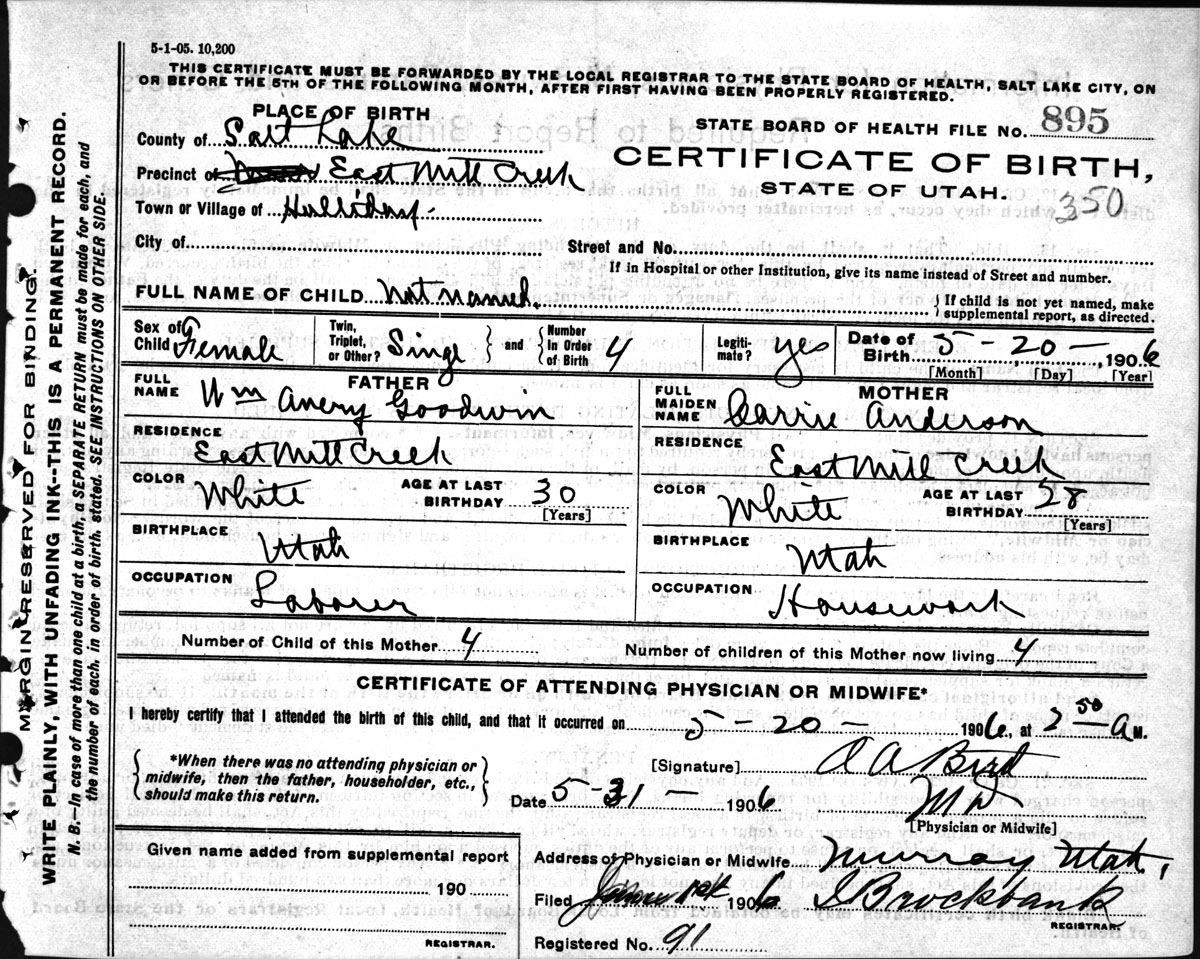 5-1-05. 10,200
THIS CERTIFICATE MUST BE FORWARDED BY THE LOCAL REGISTRAR TO THE STATE BOARD OF HEALTH, SALT LAKE CITY, ON
OR BEFORE THE 5TH OF THE FOLLOWING MONTH, AFTER FIRST HAVING BEEN PROPERLY REGISTERED.
PLACE OF BIRTH
County of Salt Lake
Precinct of East Mill Creek
Town or Village of
City of
STATE BOARD OF HEALTH FILE NO. 895
CERTIFICATE OF BIRTH,
STATE OF UTAH.
350
Street and No.
If in Hospital or other Institution, give its name instead of Street and number.
FULL NAME OF CHILD Not named.
If child is not yet named, make
supplemental report, as directed.
Sex of Child Female
Twin, Triplet, or Other? Singe
and
Number In Order of Birth 4
Legiti-mate? yes
Date of Birth 5 - 20 - , 1906
[Month] [Day] [Year]
FATHER
FULL NAME Wm Avery Goodwin
RESIDENCE East Mill Creek
COLOR White
AGE AT LAST BIRTHDAY 30
[Years]
BIRTHPLACE Utah
OCCUPATION Laborer
MOTHER
FULL MAIDEN NAME Carrie Anderson
RESIDENCE East Mill Creek
COLOR White
AGE AT LAST BIRTHDAY 28
[Years]
BIRTHPLACE Utah
OCCUPATION Housework
Number of Child of this Mother 4
Number of children of this Mother now living 4
CERTIFICATE OF ATTENDING PHYSICIAN OR MIDWIFE*
I hereby certify that I attended the birth of this child, and that it occurred on 5 - 20 - 1906, at 2 50 A M.
*When there was no attending physician or
midwife, then the father, householder, etc.,
should make this return.
[Signature] A Bird
M D
Date 5-31- 1906
[Physician or Midwife]
Given name added from supplemental report
190
REGISTRAR.
Address of Physician or Midwife Murray Utah,
Filed June 1st 1906 Brockbank
REGISTRAR.
Registered No. 91
MARGIN RESERVED FOR BINDING.
WRITE PLAINLY, WITH UNFADING INK--THIS IS A PERMANENT RECORD.
N. B.--In case of more than one child at a birth, a SEPARATE RETURN must be made for each, and
the number of each, in order of birth, stated. SEE INSTRUCTIONS ON OTHER SIDE.